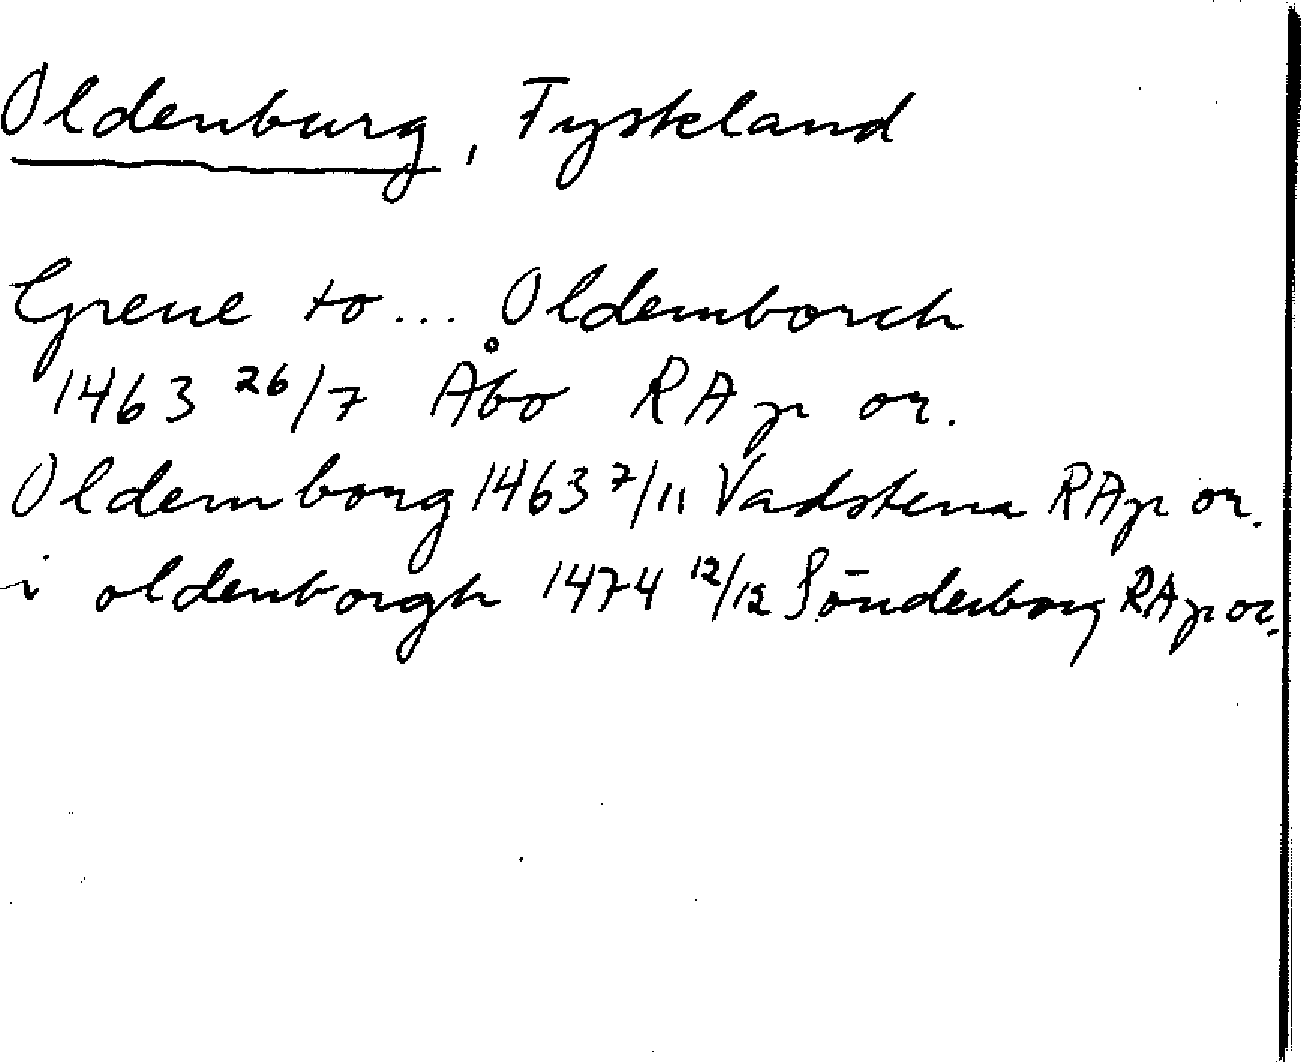 Oldenburg, Tyskland
Greue to... Oldemborch
1463 26/7 Åbo RAp or.
Oldemborg 1463 7/11 Vadstena RAp or.
i oldenborgh 1474 12/12 Sönderborg RAp or.